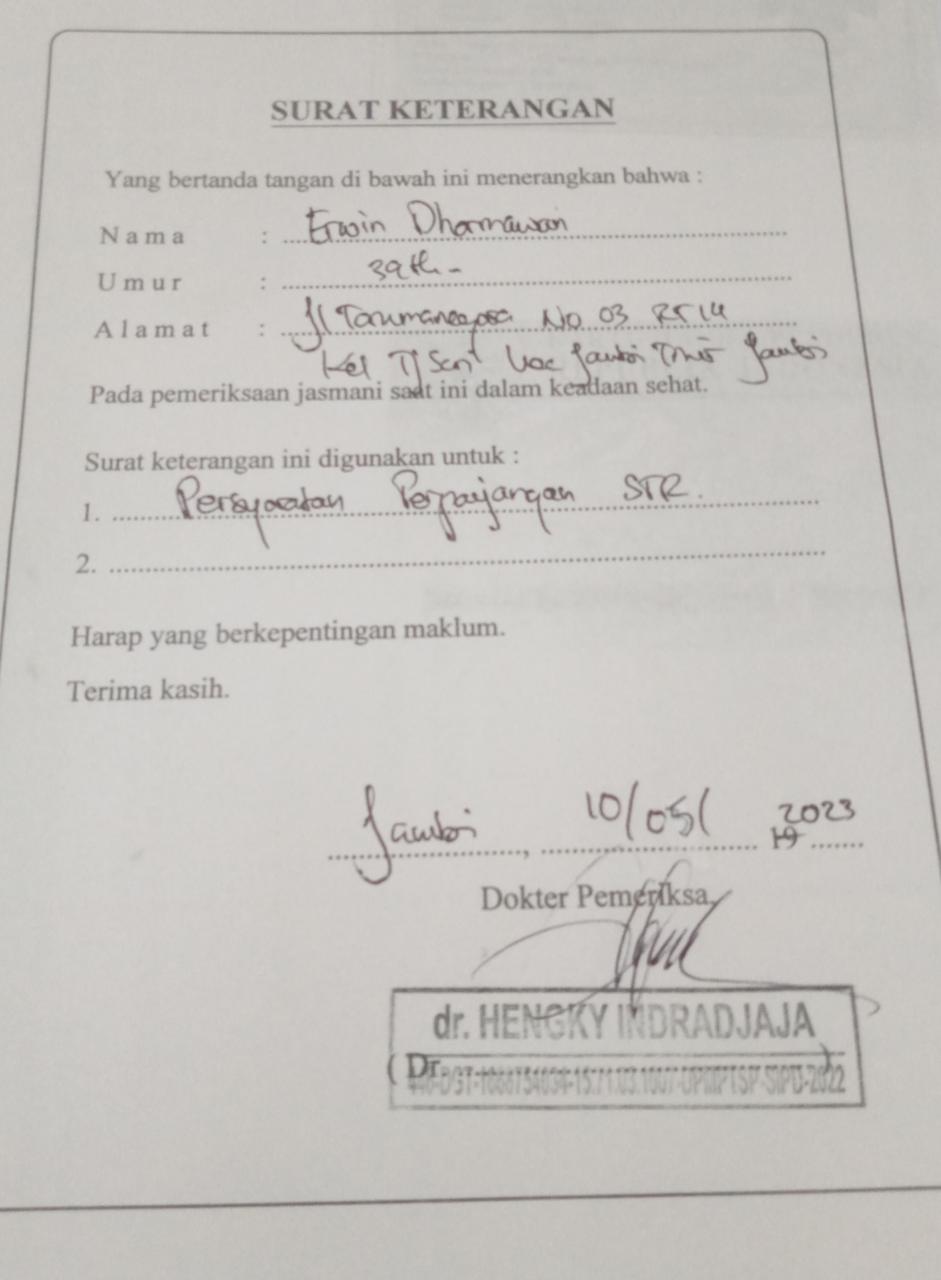 SURAT KETERANGAN
Yang bertanda tangan di bawah ini menerangkan bahwa :
Nama : Erwin Dharmawan
Umur : 39th -
Alamat : Jl Tarumanegara No 03 RT 14
Kel Tj Sari Kec Jambi Timur Jambi
Pada pemeriksaan jasmani saat ini dalam keadaan sehat.
Surat keterangan ini digunakan untuk :
1. Persyaratan Perpanjangan STR.
2.
Harap yang berkepentingan maklum.
Terima kasih.
Jambi, 10/05/ 19 2023
Dokter Pemeriksa,
dr. HENGKY INDRADJAJA
( Dr. )